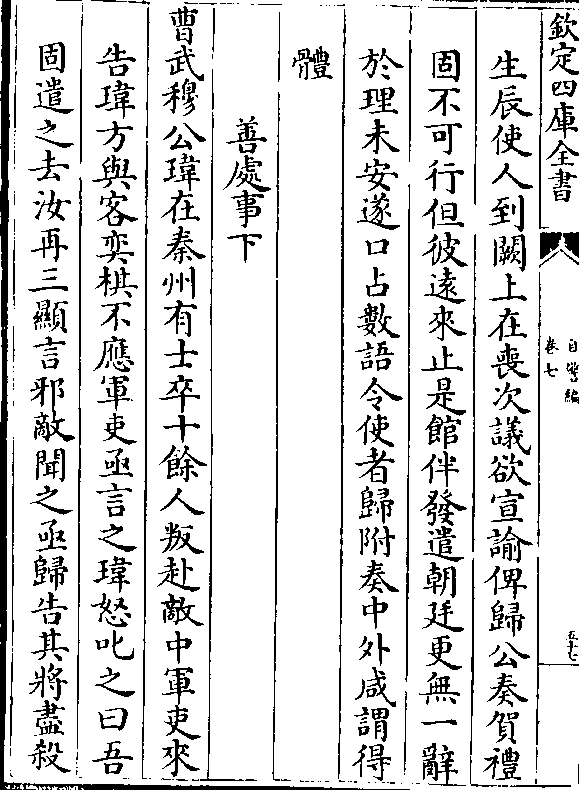 欽定四庫全書
自警編
卷七
五十七
生辰使人到闕上在喪次議欲宣諭俾歸公奏賀禮
固不可行但彼遠來止是館伴發遣朝廷更無一辭
於理未安遂口占數語令使者歸附奏中外咸謂得
體
善處事下
曹武穆公瑋在秦州有士卒十餘人叛赴敵中軍吏來
告瑋方與客奕棋不應軍吏亟言之瑋怒叱之曰吾
固遣之去汝再三顯言邪敵聞之亟歸告其將盡殺